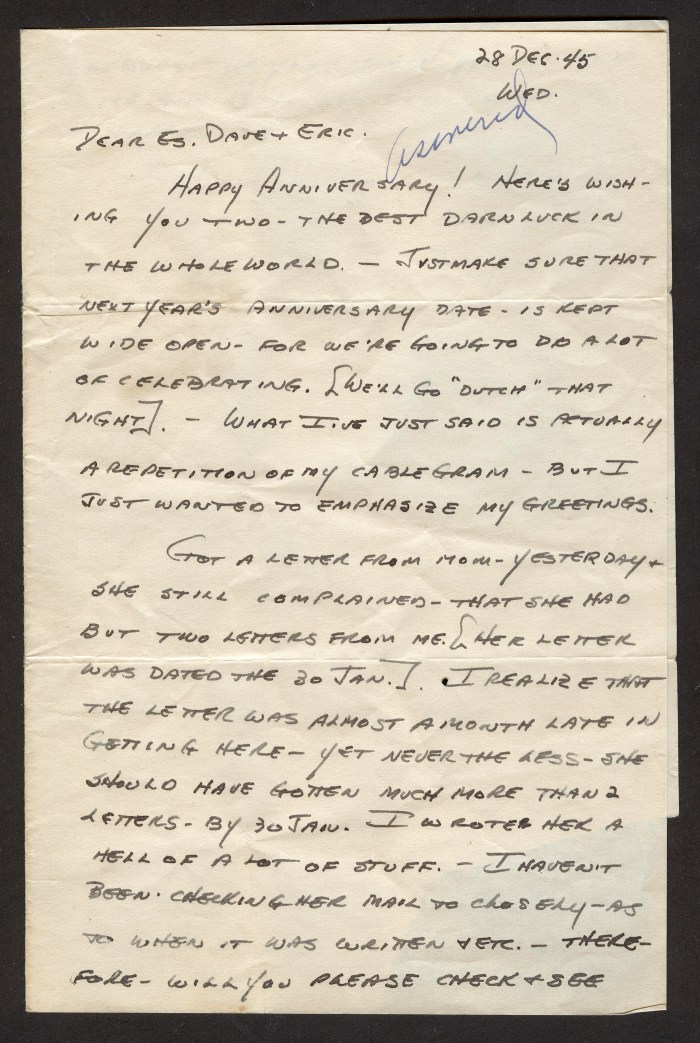 28 DEC. 45
WED.
answered
DEAR ES. DAVE + ERIC.
HAPPY ANNIVERSARY! HERE'S WISH-
ING YOU TWO - THE BEST DARN LUCK IN
THE WHOLE WORLD. - JUST MAKE SURE THAT
NEXT YEAR'S ANNIVERSARY DATE - IS KEPT
WIDE OPEN - FOR WE'RE GOING TO DO A LOT
OF CELEBRATING. [WE'LL GO "DUTCH" THAT
NIGHT]. - WHAT I'VE JUST SAID IS ACTUALLY
A REPETITION OF MY CABLEGRAM - BUT I
JUST WANTED TO EMPHASIZE MY GREETINGS.
GOT A LETTER FROM MOM - YESTERDAY +
SHE STILL COMPLAINED - THAT SHE HAD
BUT TWO LETTERS FROM ME. [HER LETTER
WAS DATED THE 30 JAN.]. I REALIZE THAT
THE LETTER WAS ALMOST A MONTH LATE IN
GETTING HERE - YET NEVER THE LESS - SHE
SHOULD HAVE GOTTEN MUCH MORE THAN 2
LETTERS - BY 30 JAN. I WROTE HER A
HELL OF A LOT OF STUFF. - I HAVEN'T
BEEN CHECKING HER MAIL TO CLOSELY - AS
TO WHEN IT WAS WRITTEN + ETC. - THERE-
FORE - WILL YOU PLEASE CHECK + SEE